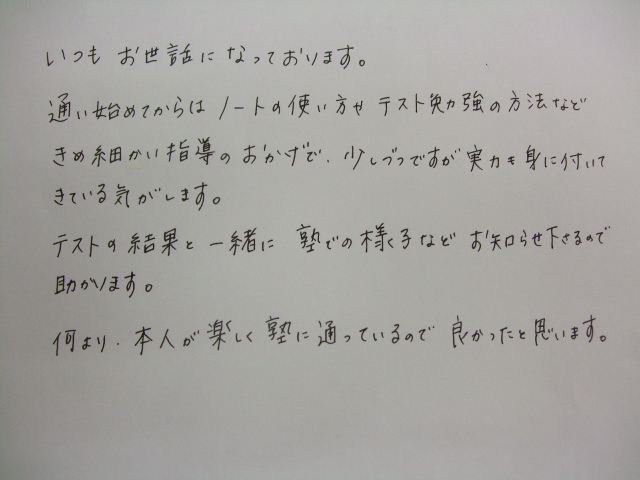 いつも お世話になっております。
通い始めてからは ノートの使い方や テスト勉強の方法など
きめ細かい指導の おかげで、少しづつですが実力も身に付いて
きている気がします。
テストの結果と一緒に 塾での様子など お知らせ下さるので
助かります。
何より、本人が楽しく塾に通っているので 良かったと思います。